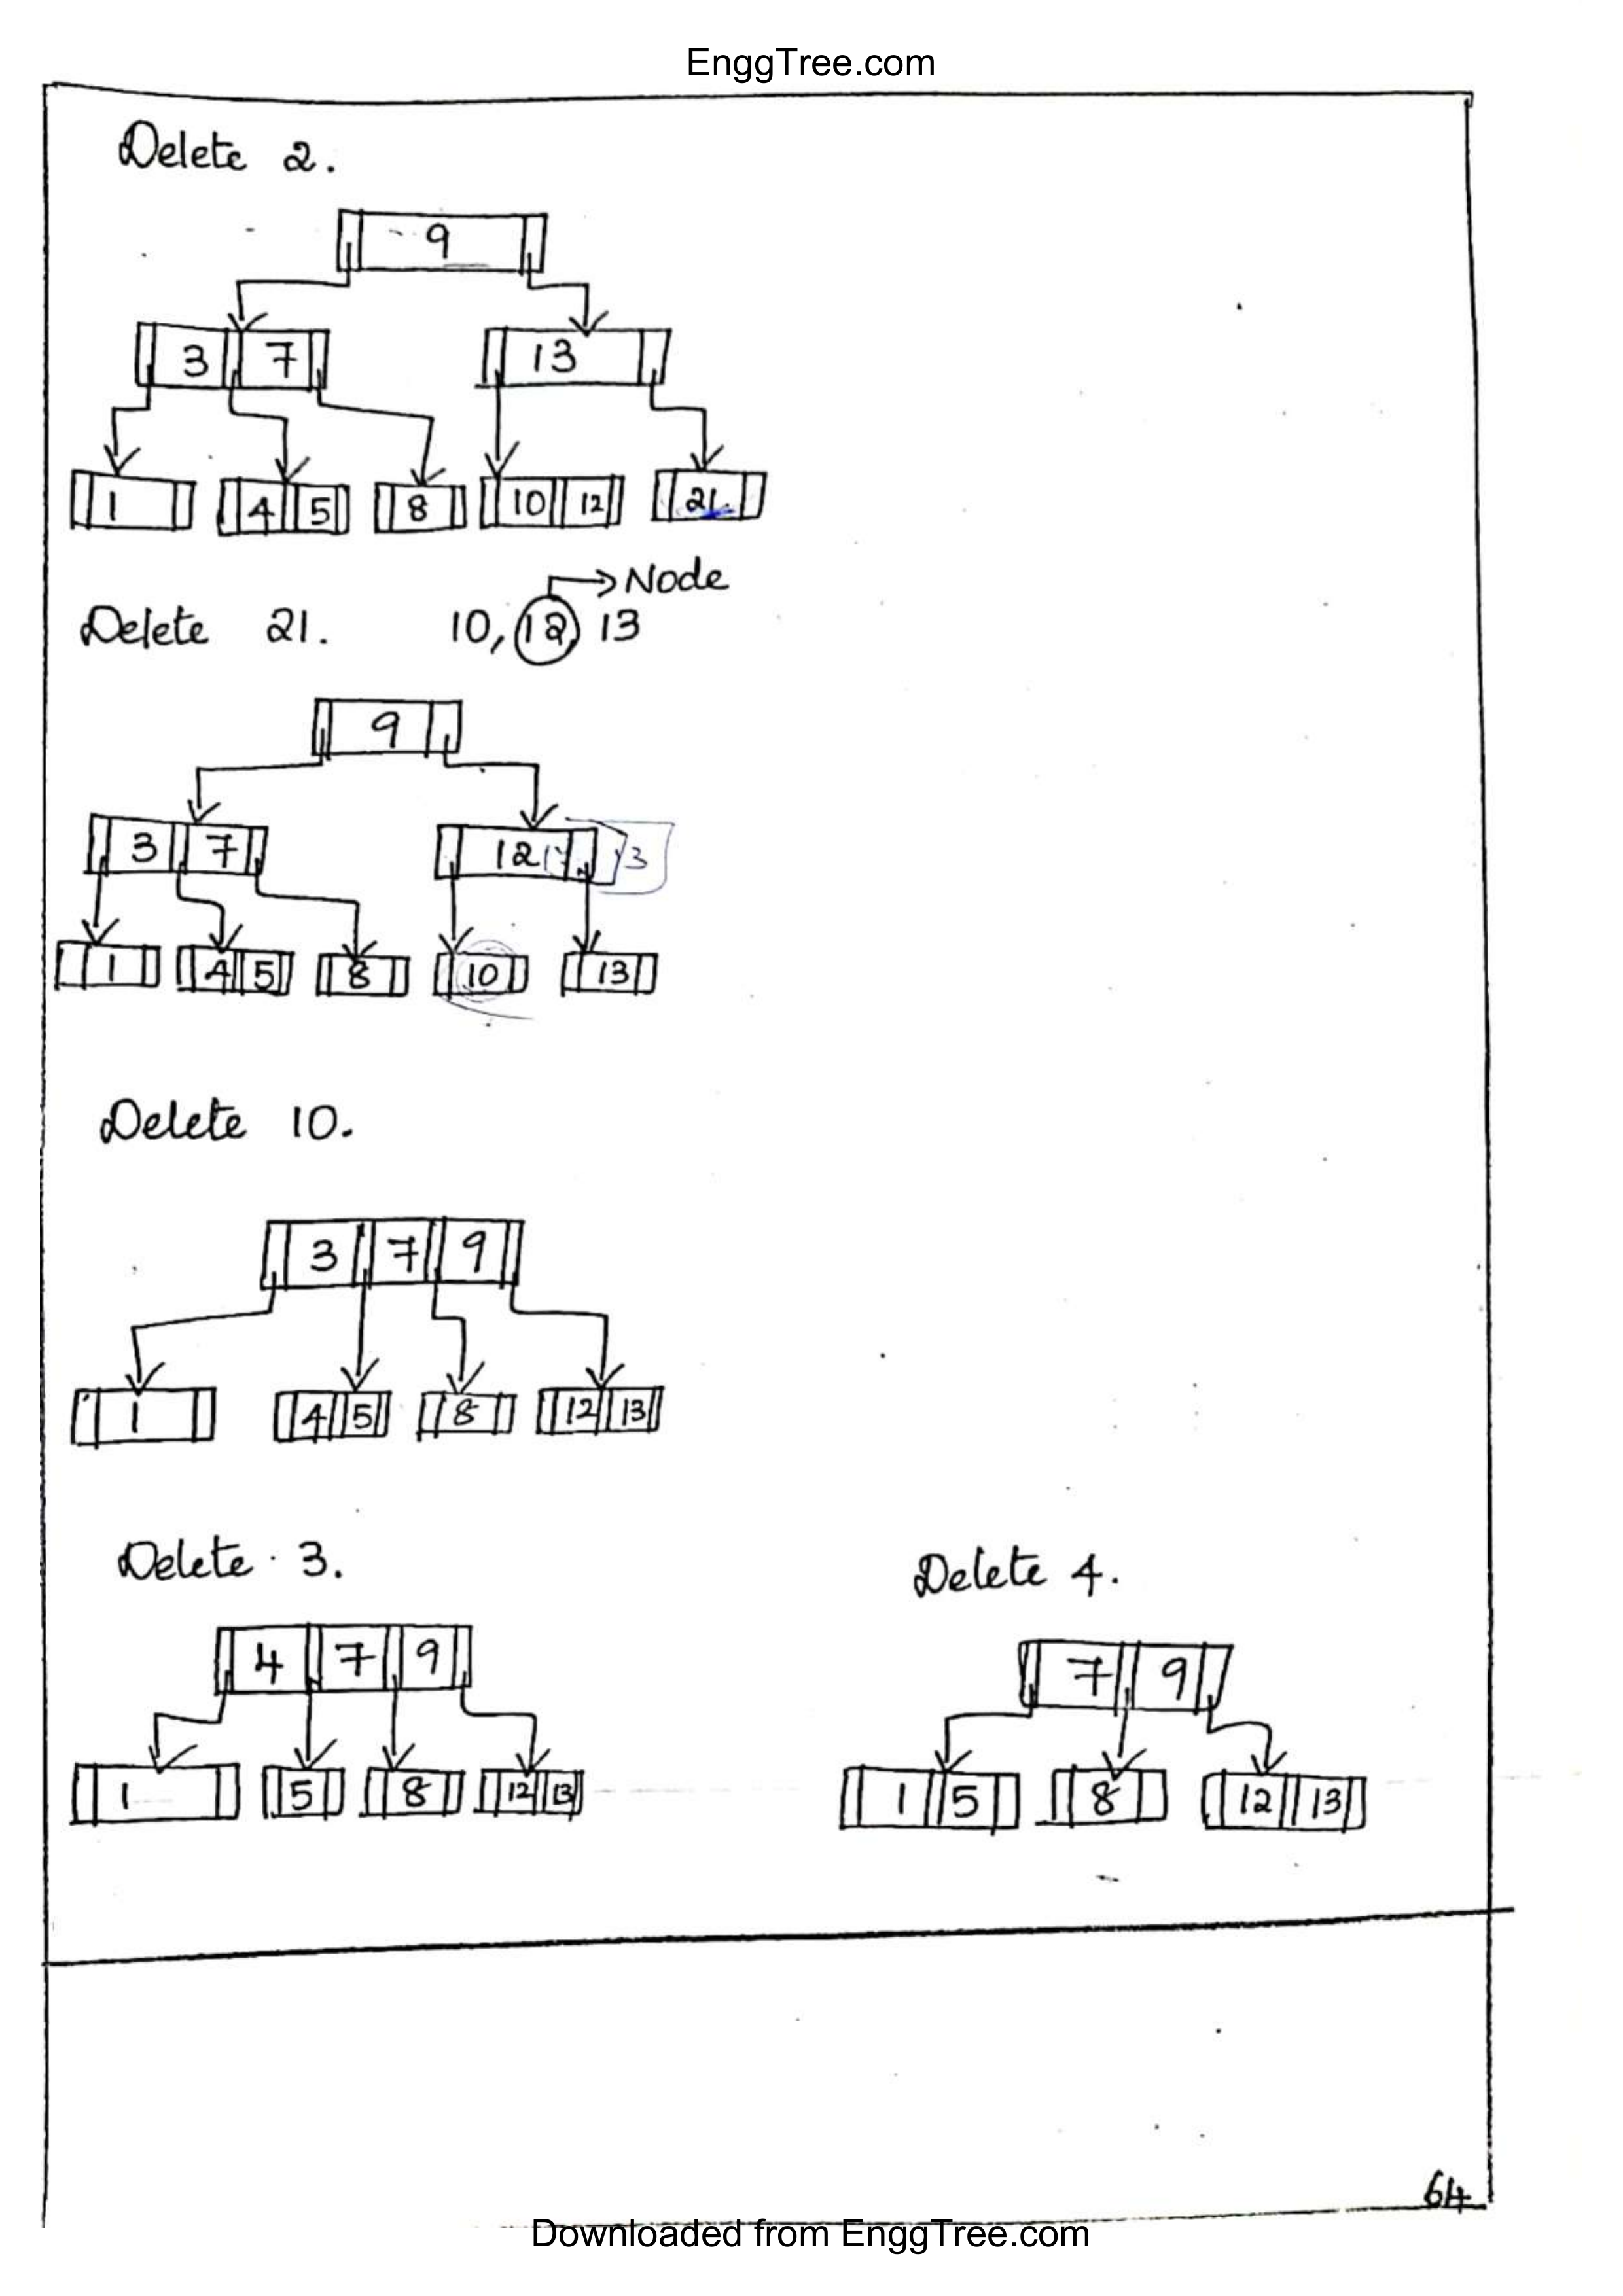 EnggTree.com
Delete 2.
9
3 7 13
1 4 5 8 10 12 21
Node
Delete 21. 10, 12 13
9
3 7 12 13
1 4 5 8 10 13
Delete 10.
3 7 9
1 4 5 8 12 13
Delete 3.
4 7 9
1 5 8 12 13
Delete 4.
7 9
1 5 8 12 13
64
Downloaded from EnggTree.com